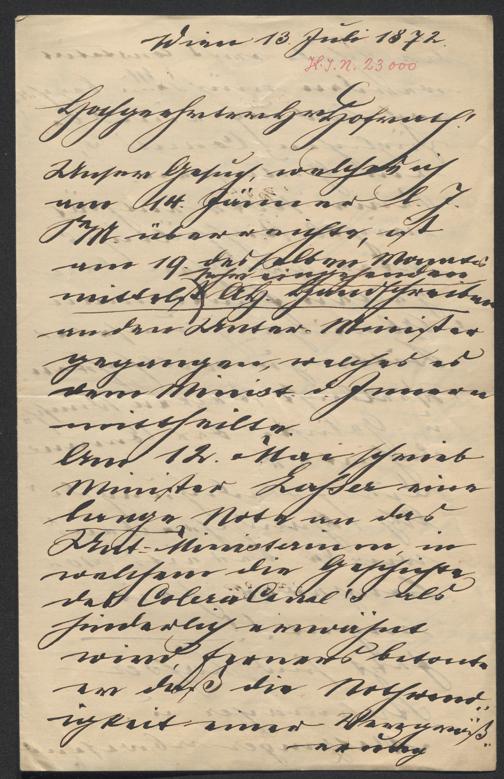 Wien 13. Juli 1872.
H.I.N. 23000
Hochgeehrter Hr Hofrath!
Unser Gesuch, welches ich
am 14 Jänner l. J.
Sr M überreichte, ist
am 19 desselben Monats
sehr eingehenden
mittelst AH Handschreiben
an den Unter. Minister
gegangen, welches es
dem Minist d Innern
mittheilte
Am 12. Mai schrieb
Minister Laßer eine
lange Note an das
Unt-Ministerium, in
welchem die Geschichte
des als
hinderlich erwähnt
wird, ferners betonte
er daß die Nothwend
igkeit einer Vergröß
erung